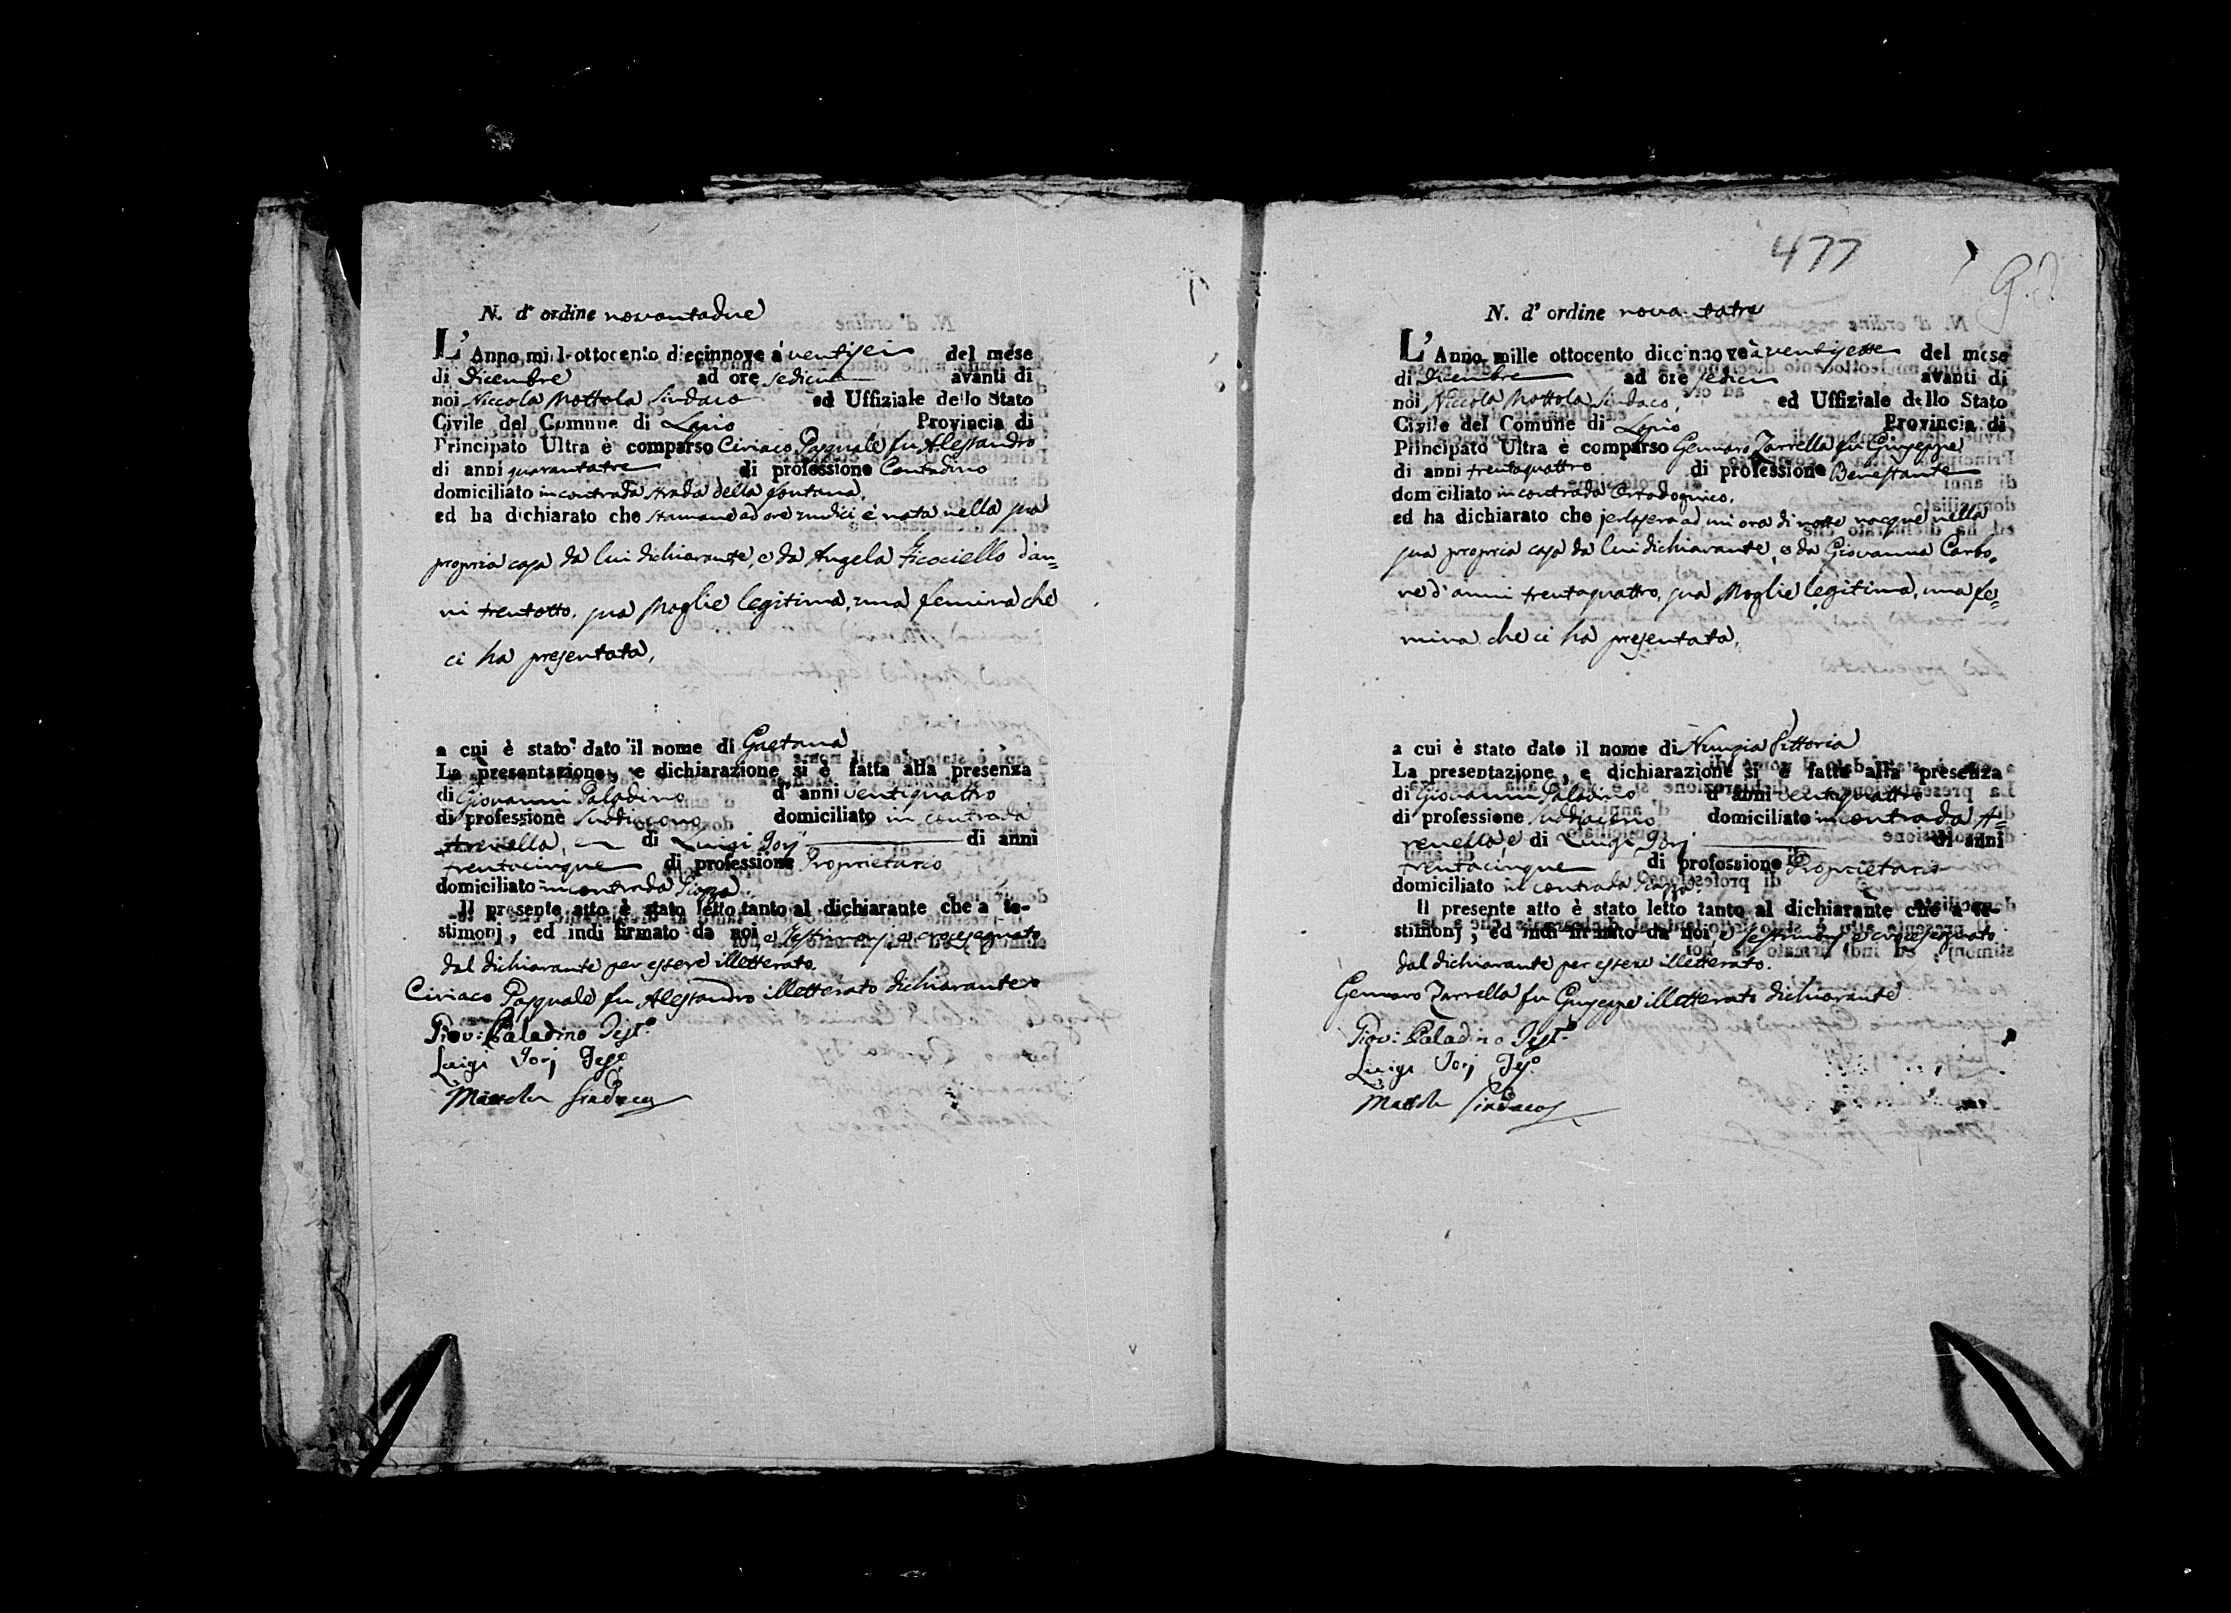 N. d' ordine novantadue
L' Anno mille ottocento diecinnove à ventisei del mese
di Dicembre ad ore sedici avanti di
noi Niccola Mottola Sindaco ed Uffiziale dello Stato
Civile del Comune di Lapio Provincia di
Principato Ultra è comparso Ciriaco Pasquale fu Alessandro
di anni quarantatre di professione Contadino
domiciliato in contrada strada della fontana,
ed ha dichiarato che stamane ad ore undici è nata nella sua
propria casa da lui dichiarante, e da Angela Ficociello d'an=
ni trentotto, sua Moglie legitima, una femina che
ci ha presentata,
a cui è stato dato il nome di Gaetana
La presentazione, e dichiarazione si è fatta alla presenza
di Giovanni Paladino d' anni ventiquattro
di professione Suddiacono domiciliato in contrada
Arenella, e di Luigi Jorj di anni
trentacinque di professione Proprietario
domiciliato in contrada Piazza.
Il presente atto è stato letto tanto al dichiarante che a te-
stimonj, ed indi firmato da noi, e Testimonj, e crocesegnato
dal dichiarante per essere illetterato.
Ciriaco Pasquale fu Alessandro illetterato dichiarante
Giov: Paladino Test.º
Luigi Jorj Tes.º
Mottola Sindaco
477
N. d' ordine novantatre
L' Anno mille ottocento diecinnove à ventisette del mese
di Dicembre ad ore sedici avanti di
noi Niccola Mottola Sindaco, ed Uffiziale dello Stato
Civile del Comune di Lapio Provincia di
Principato Ultra è comparso Gennaro Zarrella fu Giuseppe
di anni trentaquattro di professione Benestante
domiciliato in contrada Ortodognico,
ed ha dichiarato che jerlasera ad un'ora di notte nacque nella
sua propria casa da lui dichiarante, e da Giovanna Carbo=
ne d'anni trentaquattro, sua Moglie legitima, una fe=
mina che ci ha presentata,
a cui è stato dato il nome di Nunzia Vittoria
La presentazione, e dichiarazione si è fatta alla presenza
di Giovanni Paladino d' anni ventiquattro
di professione Suddiacono domiciliato in contrada A=
renella, e di Luigi Jorj di anni
trentacinque di professione Proprietario
domiciliato in contrada Piazza.
Il presente atto è stato letto tanto al dichiarante che a te-
stimonj, ed indi firmato da noi, e Testimonj e crocesegnato
dal dichiarante per essere illetterato.
Gennaro Zarrella fu Giuseppe illetterato dichiarante
Giov: Paladino Test.º
Luigi Jorj Tes.º
Mottola Sindaco